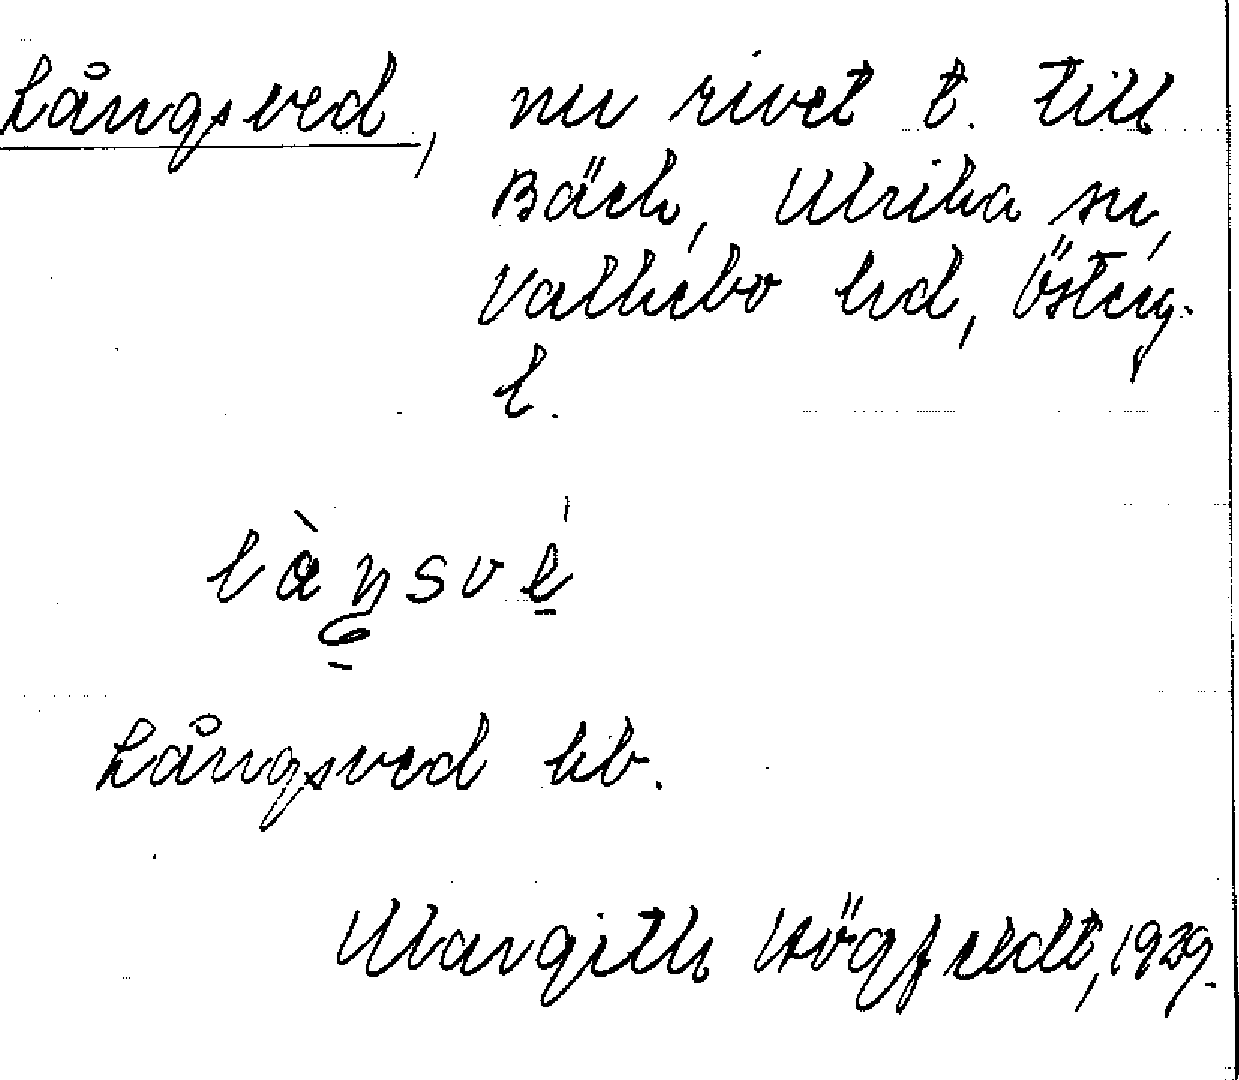 Långsved, nu rivet t. till
Bäck, Ulrika sn,
Valkebo hd, Österg.
l.
làŋsvé
Långsved kb.
Margith Högfeldt, 1939.